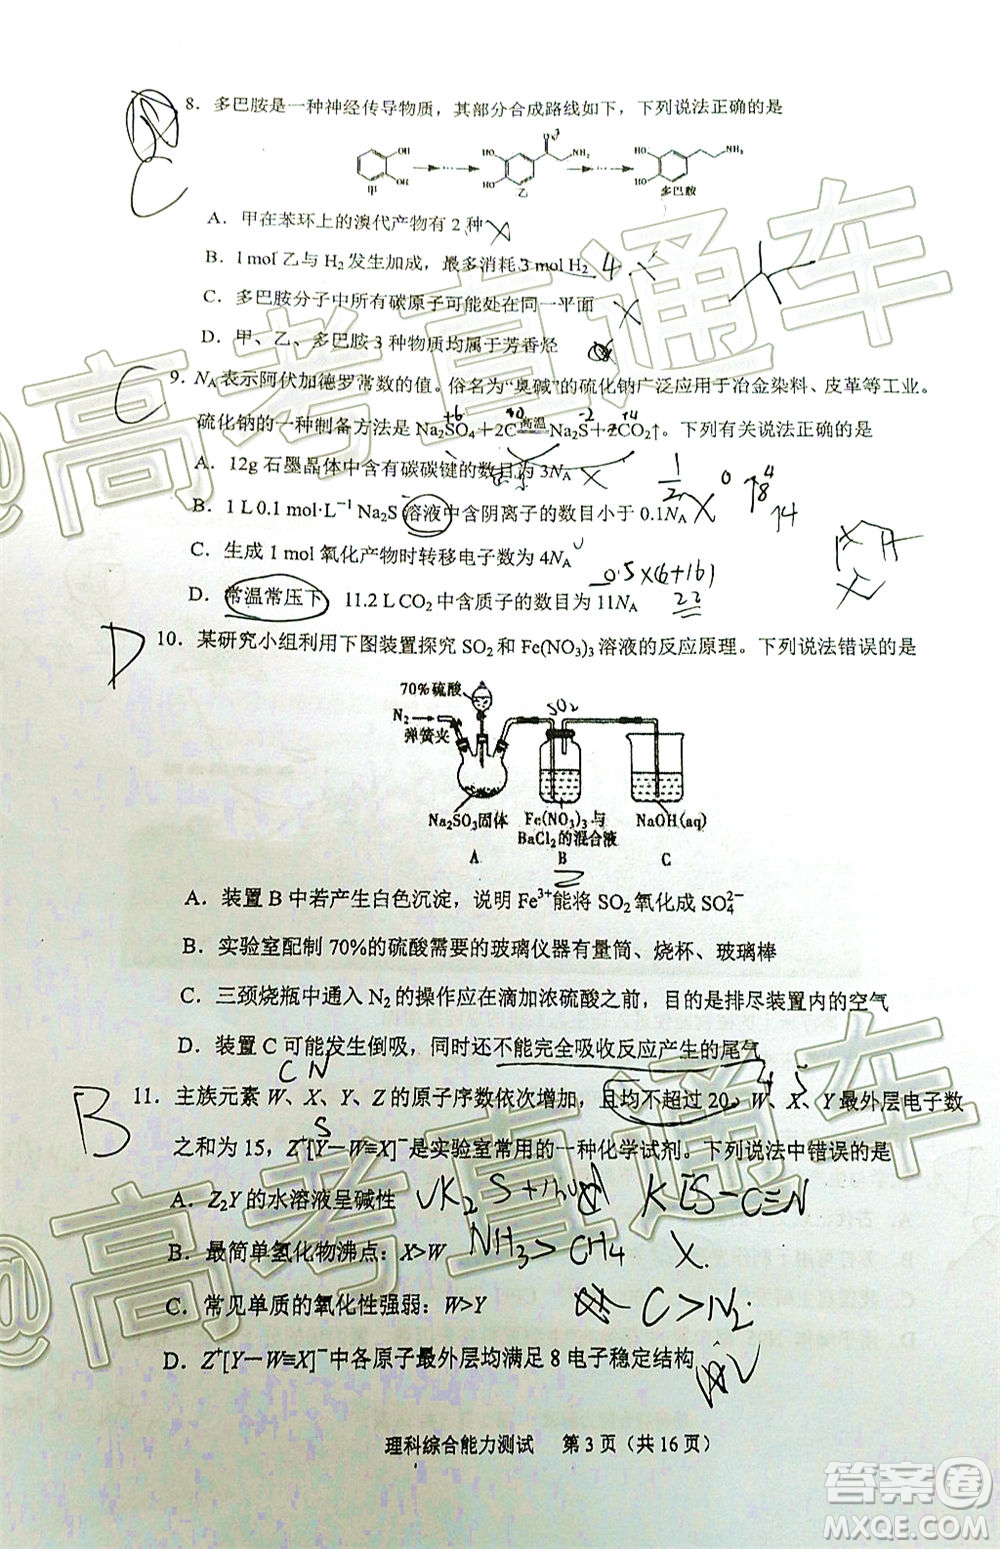 8．多巴胺是一种神经传导物质，其部分合成路线如下，下列说法正确的是
OH
OH
甲
HO
HO
O
NH₂
乙
HO
HO
NH₂
多巴胺
C
A．甲在苯环上的溴代产物有 2 种
B．1 mol 乙与 H₂ 发生加成，最多消耗 3 mol H₂ 4
C．多巴胺分子中所有碳原子可能处在同一平面
D．甲、乙、多巴胺 3 种物质均属于芳香烃
C
9．Nᴀ表示阿伏加德罗常数的值。俗名为“臭碱”的硫化钠广泛应用于冶金染料、皮革等工业。
+6 0 -2 +4
硫化钠的一种制备方法是 Na₂SO₄＋2C 高温 Na₂S＋2CO₂↑。下列有关说法正确的是
A．12g 石墨晶体中含有碳碳键的数目为 3Nᴀ
1/2
B．1 L 0.1 mol·L⁻¹ Na₂S 溶液中含阴离子的数目小于 0.1Nᴀ
C．生成 1 mol 氧化产物时转移电子数为 4Nᴀ
0.5×(6+16)
D．常温常压下 11.2 L CO₂ 中含质子的数目为 11Nᴀ
22
D
10．某研究小组利用下图装置探究 SO₂ 和 Fe(NO₃)₃ 溶液的反应原理。下列说法错误的是
70%硫酸
SO₂
N₂
弹簧夹
Na₂SO₃固体
Fe(NO₃)₃与
BaCl₂的混合液
NaOH(aq)
A B C
A．装置 B 中若产生白色沉淀，说明 Fe³⁺能将 SO₂ 氧化成 SO₄²⁻
B．实验室配制 70%的硫酸需要的玻璃仪器有量筒、烧杯、玻璃棒
C．三颈烧瓶中通入 N₂ 的操作应在滴加浓硫酸之前，目的是排尽装置内的空气
D．装置 C 可能发生倒吸，同时还不能完全吸收反应产生的尾气
C N S
B
11．主族元素 W、X、Y、Z 的原子序数依次增加，且均不超过 20。W、X、Y 最外层电子数
S
之和为 15，Z⁺[Y－W≡X]⁻是实验室常用的一种化学试剂。下列说法中错误的是
A．Z₂Y 的水溶液呈碱性
K₂S
K[S－C≡N
B．最简单氢化物沸点：X>W
NH₃>CH₄
C．常见单质的氧化性强弱：W>Y
C>N₂
D．Z⁺[Y－W≡X]⁻中各原子最外层均满足 8 电子稳定结构
理科综合能力测试 第 3 页（共 16 页）
@高考直通车
@高考直通车
答案圈
MXQE.COM